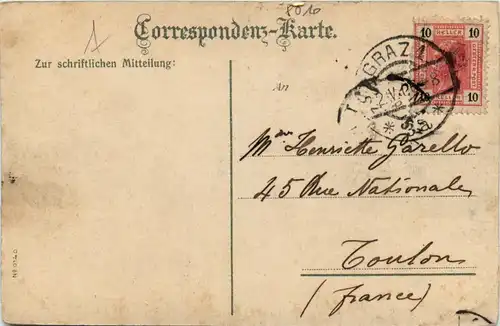 8010
Correspondenz-Karte.
Zur schriftlichen Mitteilung:
10 HELLER 10
10 HELLER 10
GRAZ
Mme Henriette Garello
45 Rue Nationale
Toulon
(france)